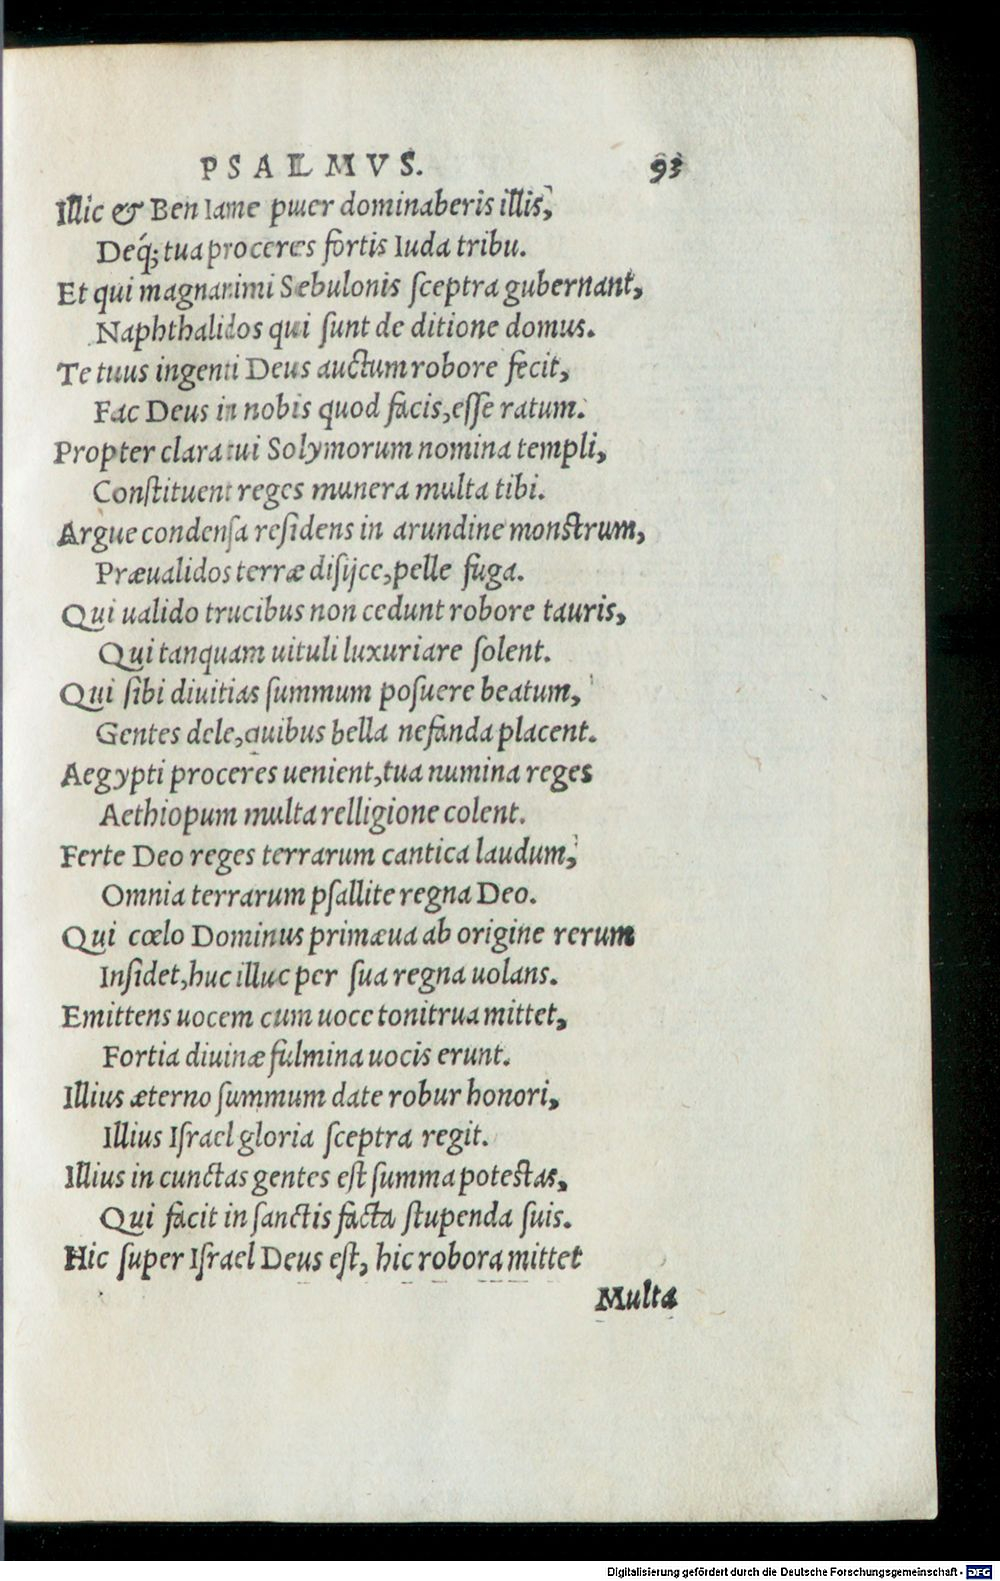 PSALMVS. 93
Illic & Ben Iame puer dominaberis illis,
Deq́; tua proceres fortis Iuda tribu.
Et qui magnanimi Sebulonis ſceptra gubernant,
Naphthalidos qui ſunt de ditione domus.
Te tuus ingenti Deus auctum robore fecit,
Fac Deus in nobis quod facis, eſſe ratum.
Propter clara tui Solymorum nomina templi,
Conſtituent reges munera multa tibi.
Argue condenſa reſidens in arundine monſtrum,
Præualidos terræ diſijce, pelle fuga.
Qui ualido trucibus non cedunt robore tauris,
Qui tanquam uituli luxuriare ſolent.
Qui ſibi diuitias ſummum poſuere beatum,
Gentes dele, quibus bella nefanda placent.
Aegypti proceres uenient, tua numina reges
Aethiopum multa relligione colent.
Ferte Deo reges terrarum cantica laudum,
Omnia terrarum pſallite regna Deo.
Qui cœlo Dominus primæua ab origine rerum
Inſidet, huc illuc per ſua regna uolans.
Emittens uocem cum uoce tonitrua mittet,
Fortia diuinæ fulmina uocis erunt.
Illius æterno ſummum date robur honori,
Illius Iſrael gloria ſceptra regit.
Illius in cunctas gentes eſt ſumma poteſtas,
Qui facit in ſanctis facta ſtupenda ſuis.
Hic ſuper Iſrael Deus eſt, hic robora mittet
Multa
Digitalisierung gefördert durch die Deutsche Forschungsgemeinschaft - DFG